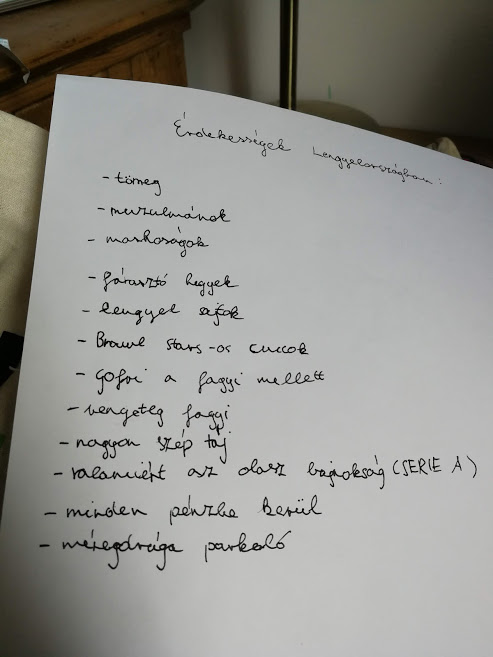 Érdekességek Lengyelországban:
- tömeg
- muzulmánok
- moshoságok
- fárasztó hegyek
- lengyel sajtok
- Brawl Stars-os cuccok
- gofri a fagyi mellett
- rengeteg fagyi
- nagyon szép táj
- valamiért az olasz bajnokság (SERIE A)
- minden pénzbe kerül
- méregdrága parkoló